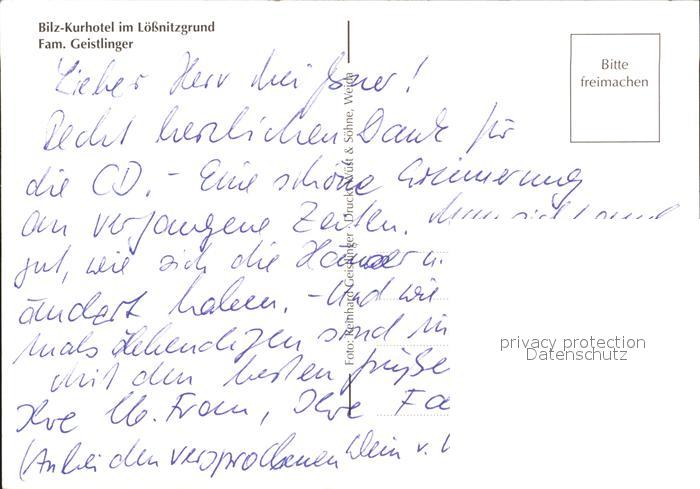 Bilz-Kurhotel im Lößnitzgrund
Fam. Geistlinger
Bitte
freimachen
Lieber Herr Meißner!
Recht herzlichen Dank für
die CD. - Eine schöne Erinnerung
an vergangene Zeiten.
gut, wie sich die Häuser u.
ändert haben. - Und wie
mals Lebendigen sind in
Mit den besten Grüße
Ihre Fa
(Anbei den versprochenen Wein v.
Foto: Reinhard Geistlinger · Druck: Wüst & Söhne, Weida
privacy protection
Datenschutz